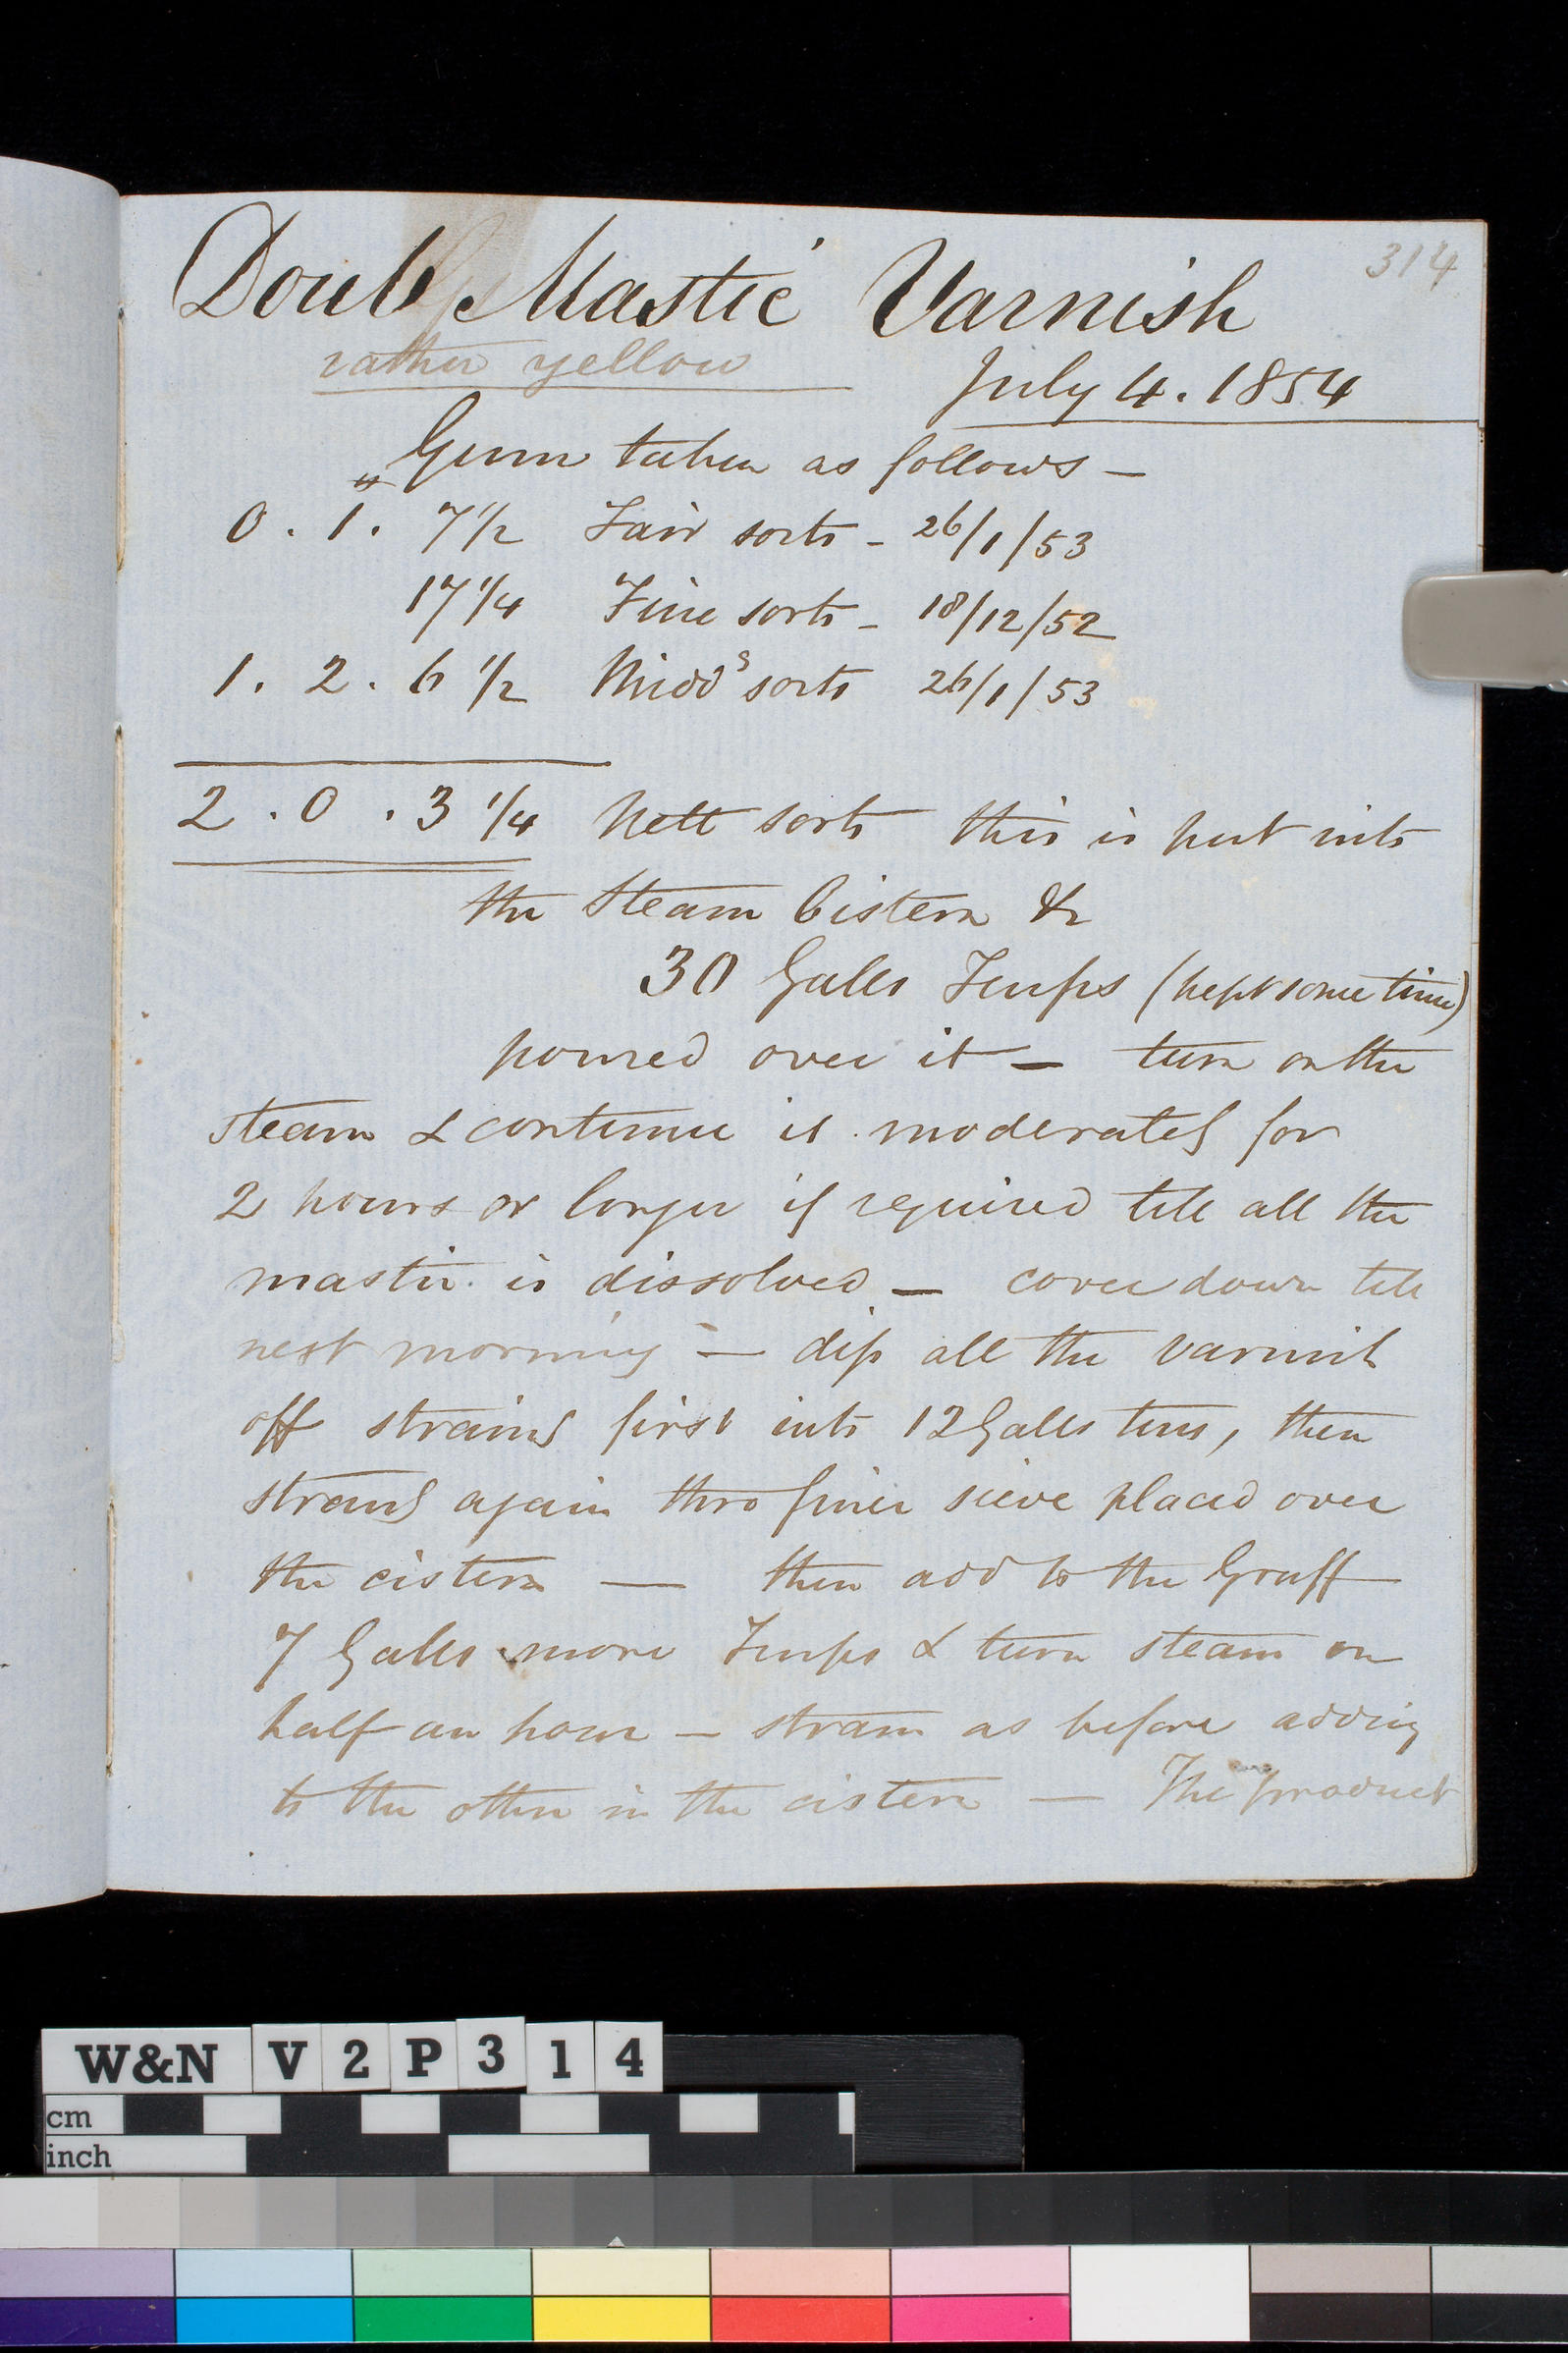 314
Double Mastic Varnish
rather yellow
July 4. 1854
Gum taken as follows —
0 . 1 . 7 1/2 Fair sorts - 26/1/53
17 1/4 Fine sorts - 18/12/52
1 . 2 . 6 1/2 Midd^s sorts 26/1/53
2 . 0 . 3 1/4 Nett sorts this is put into
the Steam Cistern &
30 Galls Turps (kept some time)
poured over it — turn on the
steam & continue it moderately for
2 hours or longer if required till all the
mastic is dissolved — cover down till
next morning — dip all the varnish
off straining first into 12 Galls tins, then
straing again thro finer sieve placed over
the cistern — then add to the Gruff
7 Galls more Turps & turn steam on
half an hour — strain as before adding
to the other in the cistern — The product
W&N V2P314
cm
inch